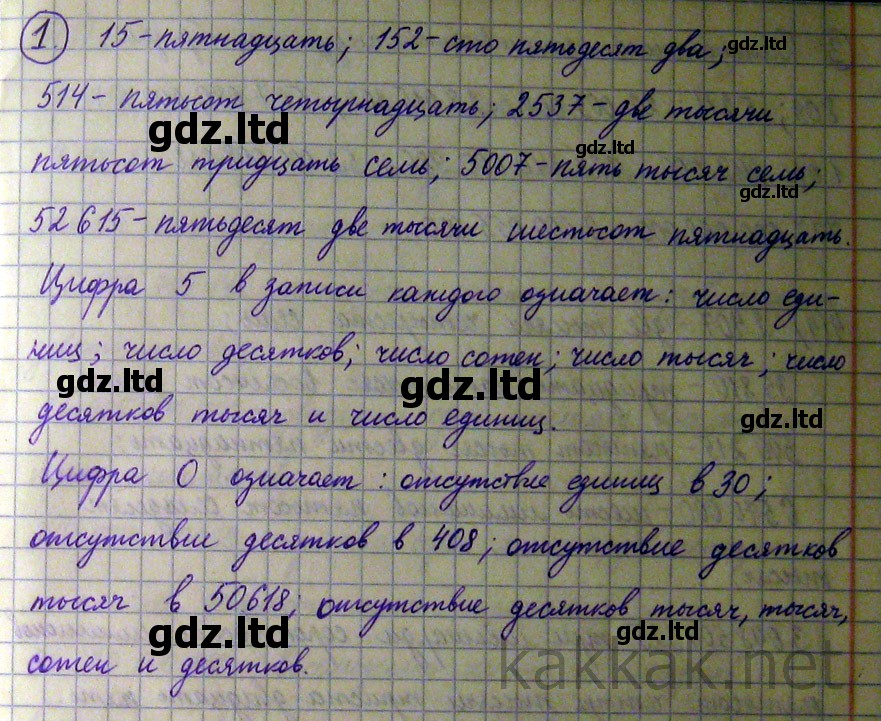 1. 15-пятнадцать; 152-сто пятьдесят два; gdz.ltd
514- пятьсот четырнадцать; 2537-две тысячи
gdz.ltd gdz.ltd
пятьсот тридцать семь; 5007-пять тысяч семь;
gdz.ltd
52 615-пятьдесят две тысячи шестьсот пятнадцать.
Цифра 5 в записи каждого означает: число еди-
ниц; число десятков; число сотен; число тысяч; число
gdz.ltd gdz.ltd
десятков тысяч и число единиц. gdz.ltd
Цифра 0 означает: отсутствие единиц в 30;
отсутствие десятков в 408; отсутствие десятков
тысяч в 50618; отсутствие десятков тысяч, тысяч,
gdz.ltd gdz.ltd
сотен и десятков.
kakkak.net